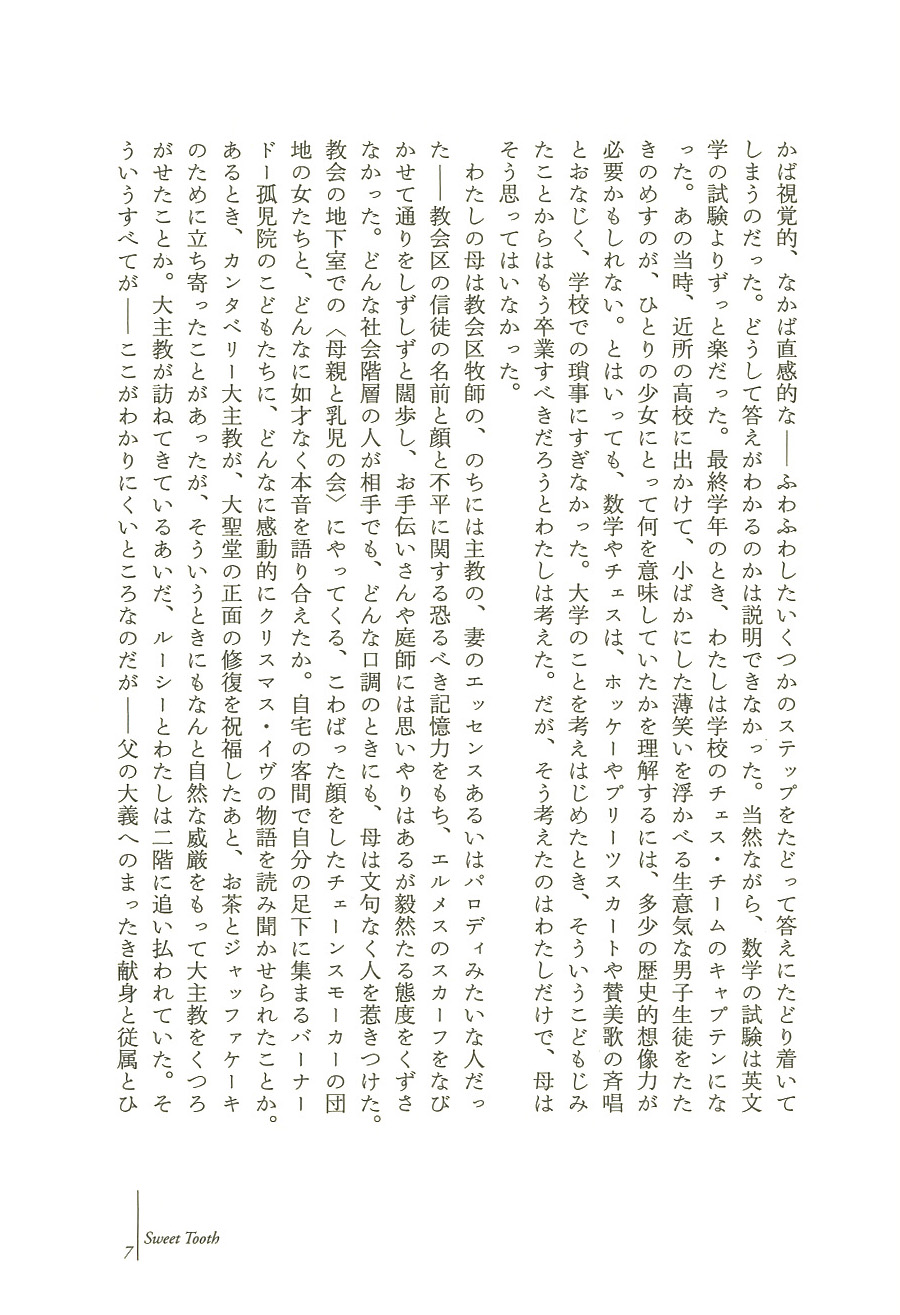 かば視覚的、なかば直感的な――ふわふわしたいくつかのステップをたどって答えにたどり着いて
しまうのだった。どうして答えがわかるのかは説明できなかった。当然ながら、数学の試験は英文
学の試験よりずっと楽だった。最終学年のとき、わたしは学校のチェス・チームのキャプテンにな
った。あの当時、近所の高校に出かけて、小ばかにした薄笑いを浮かべる生意気な男子生徒をたた
きのめすのが、ひとりの少女にとって何を意味していたかを理解するには、多少の歴史的想像力が
必要かもしれない。とはいっても、数学やチェスは、ホッケーやプリーツスカートや賛美歌の斉唱
とおなじく、学校での瑣事にすぎなかった。大学のことを考えはじめたとき、そういうこどもじみ
たことからはもう卒業すべきだろうとわたしは考えた。だが、そう考えたのはわたしだけで、母は
そう思ってはいなかった。
わたしの母は教会区牧師の、のちには主教の、妻のエッセンスあるいはパロディみたいな人だっ
た――教会区の信徒の名前と顔と不平に関する恐るべき記憶力をもち、エルメスのスカーフをなび
かせて通りをしずしずと闊歩し、お手伝いさんや庭師には思いやりはあるが毅然たる態度をくずさ
なかった。どんな社会階層の人が相手でも、どんな口調のときにも、母は文句なく人を惹きつけた。
教会の地下室での〈母親と乳児の会〉にやってくる、こわばった顔をしたチェーンスモーカーの団
地の女たちと、どんなに如才なく本音を語り合えたか。自宅の客間で自分の足下に集まるバーナー
ドー孤児院のこどもたちに、どんなに感動的にクリスマス・イヴの物語を読み聞かせられたことか。
あるとき、カンタベリー大主教が、大聖堂の正面の修復を祝福したあと、お茶とジャッファケーキ
のために立ち寄ったことがあったが、そういうときにもなんと自然な威厳をもって大主教をくつろ
がせたことか。大主教が訪ねてきているあいだ、ルーシーとわたしは二階に追い払われていた。そ
ういうすべてが――ここがわかりにくいところなのだが――父の大義へのまったき献身と従属とひ
Sweet Tooth
7